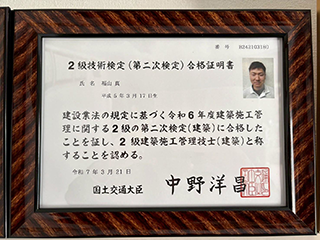 番号 H24310318号
2級技術検定(第二次検定)合格証明書
氏名 福山 真
平成6年3月17日生
建設業法の規定に基づく令和6年度建築施工管
理に関する2級の第二次検定(建築)に合格した
ことを証し、2級建築施工管理技士(建築)と称
することを認める。
令和7年3月21日
国土交通大臣 中野洋昌